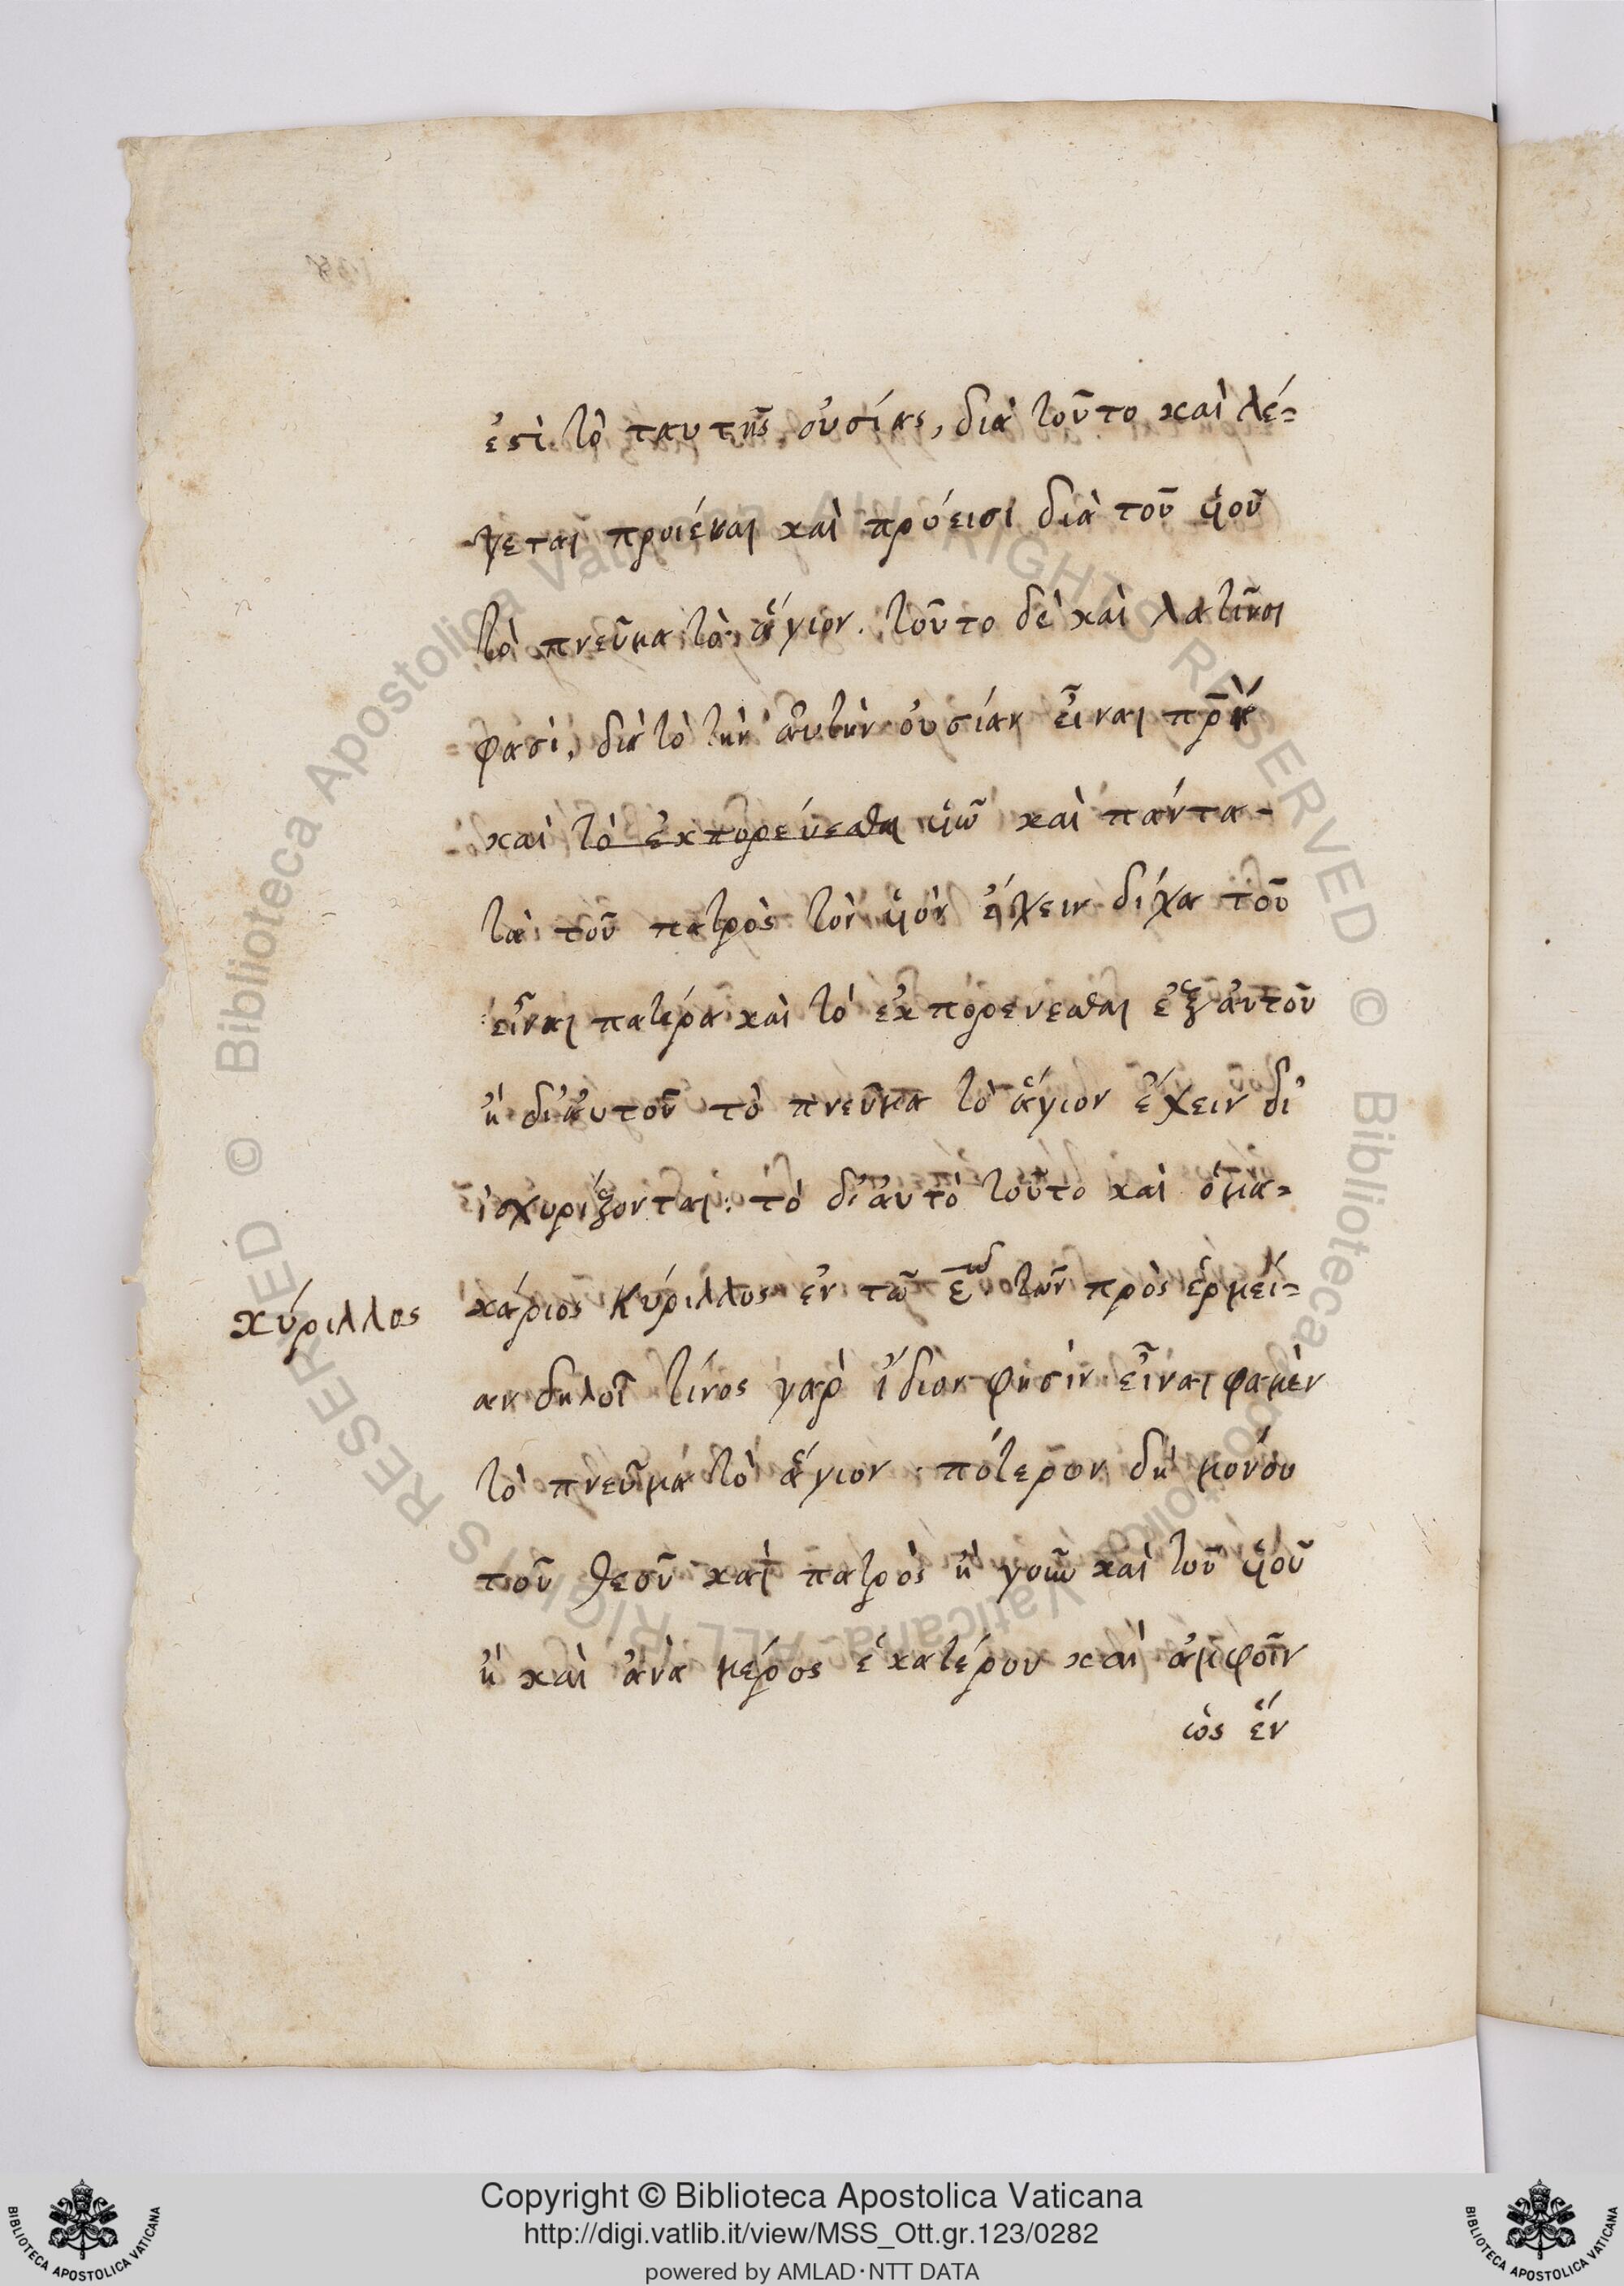 ἐστὶ τὸ ταυτῆς οὐσίας, διὰ τοῦτο καὶ λέ=
γεται προιέναι καὶ πρόεισι διὰ τοῦ ὑιοῦ
τὸ πνεῦμα τὸ ἅγιον. τοῦτο δὲ καὶ λατῖνοι
φασὶ, διὰ τὸ τὴν ἀυτὴν οὐσίαν εἶναι πρς
καὶ τὸ ἐκπορεύεσθαι ὑιῶ καὶ πάντα-
τὰ τοῦ πατρὸς τὸν ὑιὸν ἔχειν δίχα τοῦ
εἶναι πατέρα καὶ τὸ ἐκπορευεσθαι ἐξ ἀυτοῦ
ἢ δι' ἀυτοῦ τὸ πνεῦμα τὸ ἅγιον ἔχειν δι
ἰσχυρίζονται: τὸ δ' ἀυτὸ τοῦτο καὶ ὁ μα=
κύριλλος
κάριος Κύριλλος ἐν τῶ ε῀ω τῶν πρὸς ἑρμεί=
αν δηλοῖ τίνος γὰρ ἴδιον φησὶν εἶναι φαμὲν
τὸ πνεῦμα τὸ ἅγιον. πότερον δὴ μονου
τοῦ θεοῦ καὶ πατρὸς ἢ γοῦν καὶ τοῦ ὑιοῦ
ἢ καὶ ἀνὰ μέρος ἑκατέρου καὶ ἀμφοῖν
ὡς ἕν
Copyright © Biblioteca Apostolica Vaticana
http://digi.vatlib.it/view/MSS_Ott.gr.123/0282
powered by AMLAD·NTT DATA
BIBLIOTECA APOSTOLICA VATICANA
BIBLIOTECA APOSTOLICA VATICANA
© Biblioteca Apostolica Vaticana ALL RIGHTS RESERVED © Biblioteca Apostolica Vaticana ALL RIGHTS RESERVED